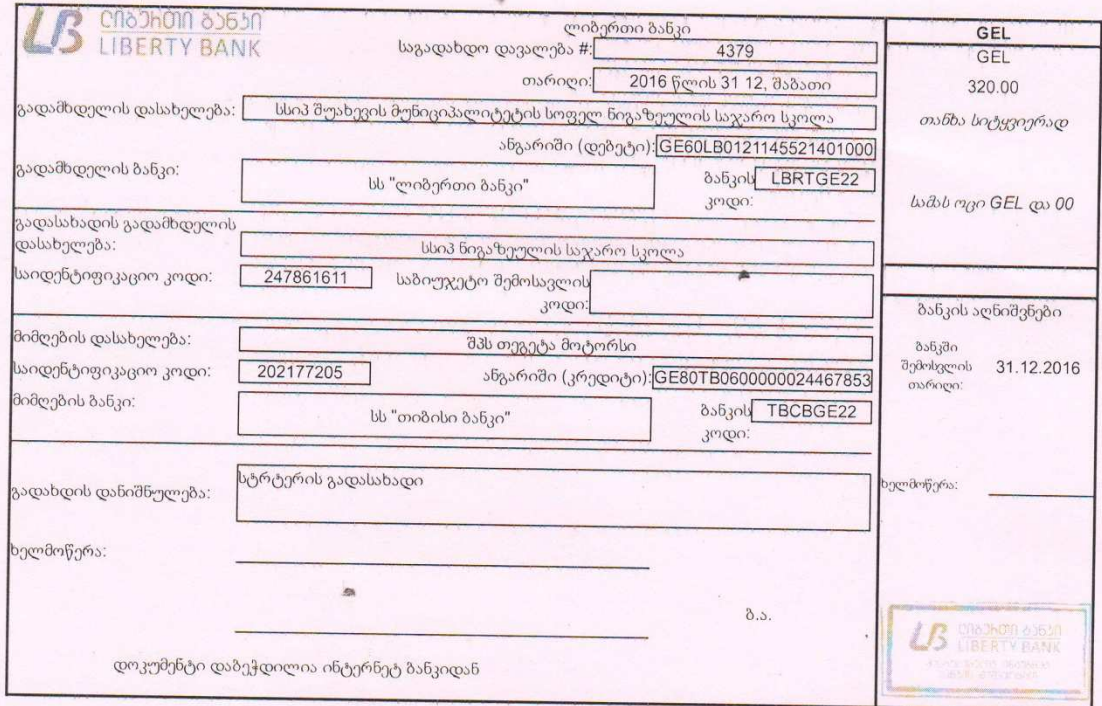 ლიბერთი ბანკი
LIBERTY BANK
ლიბერთი ბანკი
საგადახდო დავალება #: 4379
თარიღი: 2016 წლის 31 12, შაბათი
გადამხდელის დასახელება: სსიპ შუახევის მუნიციპალიტეტის სოფელ ნიგაზეულის საჯარო სკოლა
ანგარიში (დებეტი): GE60LB0121145521401000
გადამხდელის ბანკი: სს "ლიბერთი ბანკი" ბანკის კოდი: LBRTGE22
გადასახადის გადამხდელის
დასახელება: სსიპ ნიგაზეულის საჯარო სკოლა
საიდენტიფიკაციო კოდი: 247861611 საბიუჯეტო შემოსავლის
კოდი:
მიმღების დასახელება: შპს თეგეტა მოტორსი
საიდენტიფიკაციო კოდი: 202177205 ანგარიში (კრედიტი): GE80TB0600000024467853
მიმღების ბანკი: სს "თიბისი ბანკი" ბანკის კოდი: TBCBGE22
გადახდის დანიშნულება: სტრტერის გადასახადი
ხელმოწერა:
ბ.ა.
დოკუმენტი დაბეჭდილია ინტერნეტ ბანკიდან
GEL
GEL
320.00
თანხა სიტყვიერად
სამას ოცი GEL და 00
ბანკის აღნიშვნები
ბანკში
შემოსვლის 31.12.2016
თარიღი:
ხელმოწერა:
ლიბერთი ბანკი
LIBERTY BANK